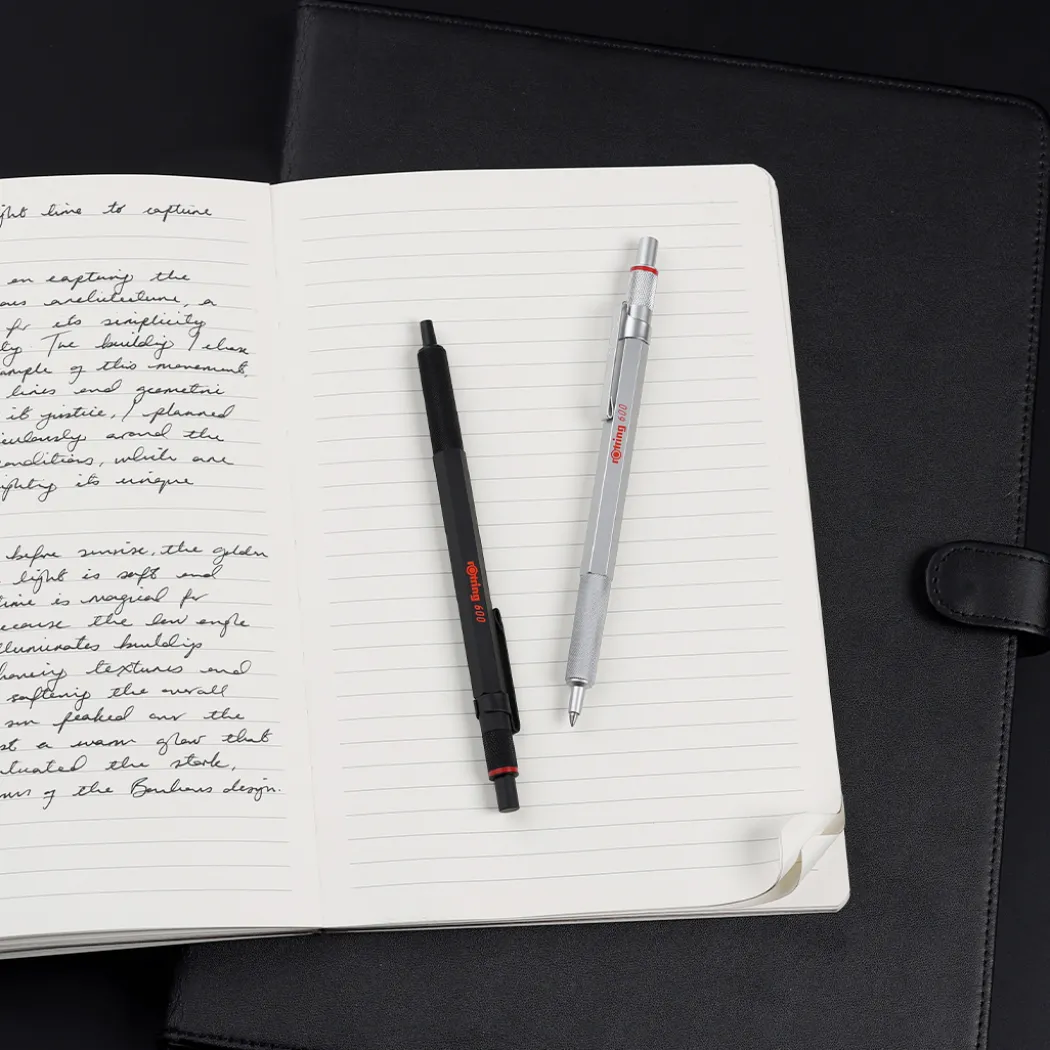 ght time to capture
on capturing the
ous architecture, a
for its simplicity
ty. The building I chose
ample of this movement,
lines and geometric
it justice, I planned
iculously around the
onditions, which are
ighting its unique
before sunrise, the golden
light is soft and
time is magical for
ecause the low angle
lluminates buildings
hancing textures and
softening the overall
sun peaked over the
st a warm glow that
ntuated the stark,
of the Bauhaus design.
rOtring 600
rOtring 600